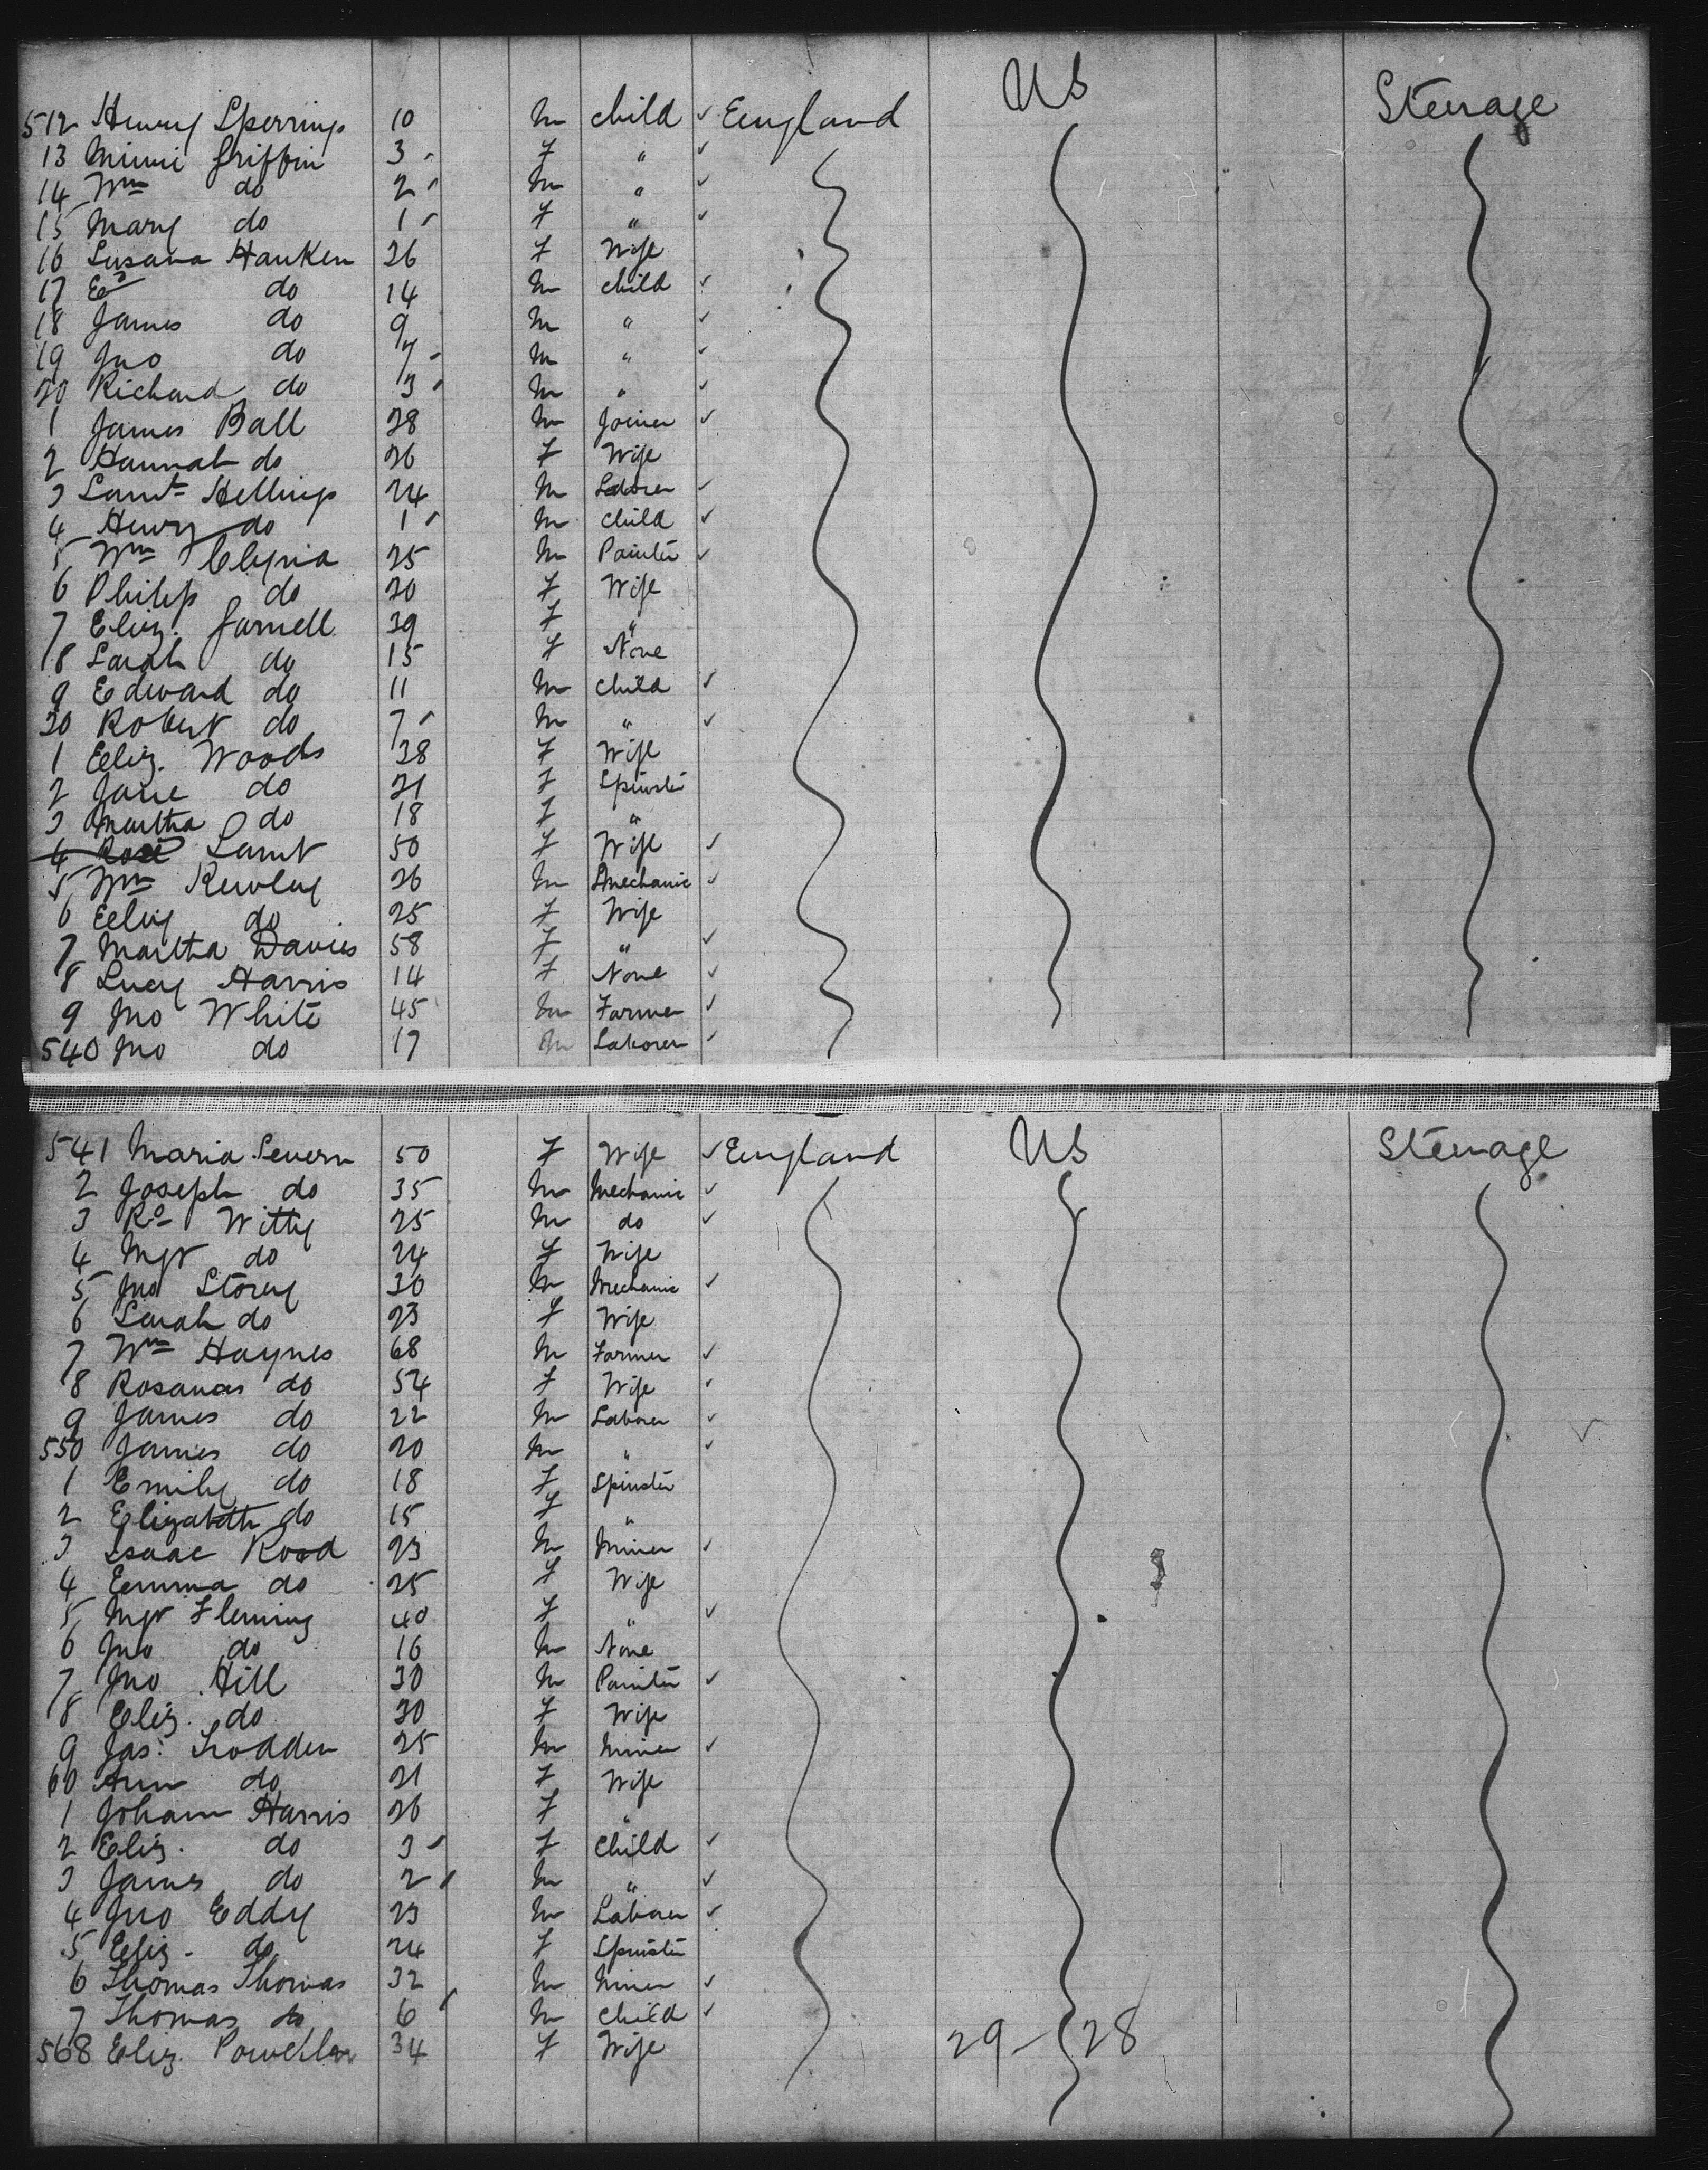 US Steerage
512 Henry Sperring 10 m child ✓ England
13 Minni Griffin 3 f " ✓
14 Wm do 2 m " ✓
15 Mary do 1 f " ✓
16 Susana Hanken 26 f Wife
17 Ed do 14 m child ✓
18 James do 9 m " ✓
19 Jno do 7 m " ✓
20 Richard do 3 m " ✓
1 James Ball 28 m Joiner ✓
2 Hannah do 26 f Wife
3 Saml Hellings 24 m Laborer ✓
4 Henry do 1 m child ✓
5 Wm 25 m Painter ✓
6 Philip do 20 f Wife
7 Eliz. 39 f "
8 Sarah do 15 f None
9 Edward do 11 m child ✓
30 Robert do 7 m " ✓
1 Eliz. Woods 38 f Wife
2 Jane do 21 f Spinster
3 Martha do 18 f "
4 Rose 50 f Wife ✓
5 Wm 26 m mechanic ✓
6 Eliz do 25 f Wife
7 Martha Davies 58 f " ✓
8 Lucy Harris 14 f None ✓
9 Jno White 45 m Farmer ✓
540 Jno do 17 m Laborer ✓
541 Maria Severn 50 f Wife ✓ England US Steerage
2 Joseph do 35 m Mechanic ✓
3 Rd Witty 25 m do ✓
4 Mgt do 24 f Wife
5 Jno Storey 30 m Mechanic ✓
6 Sarah do 23 f Wife
7 Wm Haynes 68 m Farmer ✓
8 Rosanas do 54 f Wife ✓
9 James do 22 m Laborer ✓
550 James do 20 m " ✓
1 Emily do 18 f Spinster
2 Elizabeth do 15 f "
3 Isaac Road 23 m Miner ✓
4 Emma do 25 f Wife
5 Mgt Fleming 40 f " ✓
6 Jno do 16 m None
7 Jno Hill 30 m Painter ✓
8 Eliz. do 30 f Wife
9 Jas. Trodden 25 m Miner ✓
60 Ann do 21 f Wife
1 Johann Harris 26 f "
2 Eliz. do 3 f Child ✓
3 James do 2 m " ✓
4 Jno Eddy 23 m Laborer ✓
5 Eliz. do 24 f Spinster
6 Thomas Thomas 32 m Miner ✓
7 Thomas do 6 m Child ✓
568 Eliz. 34 f Wife 29-28